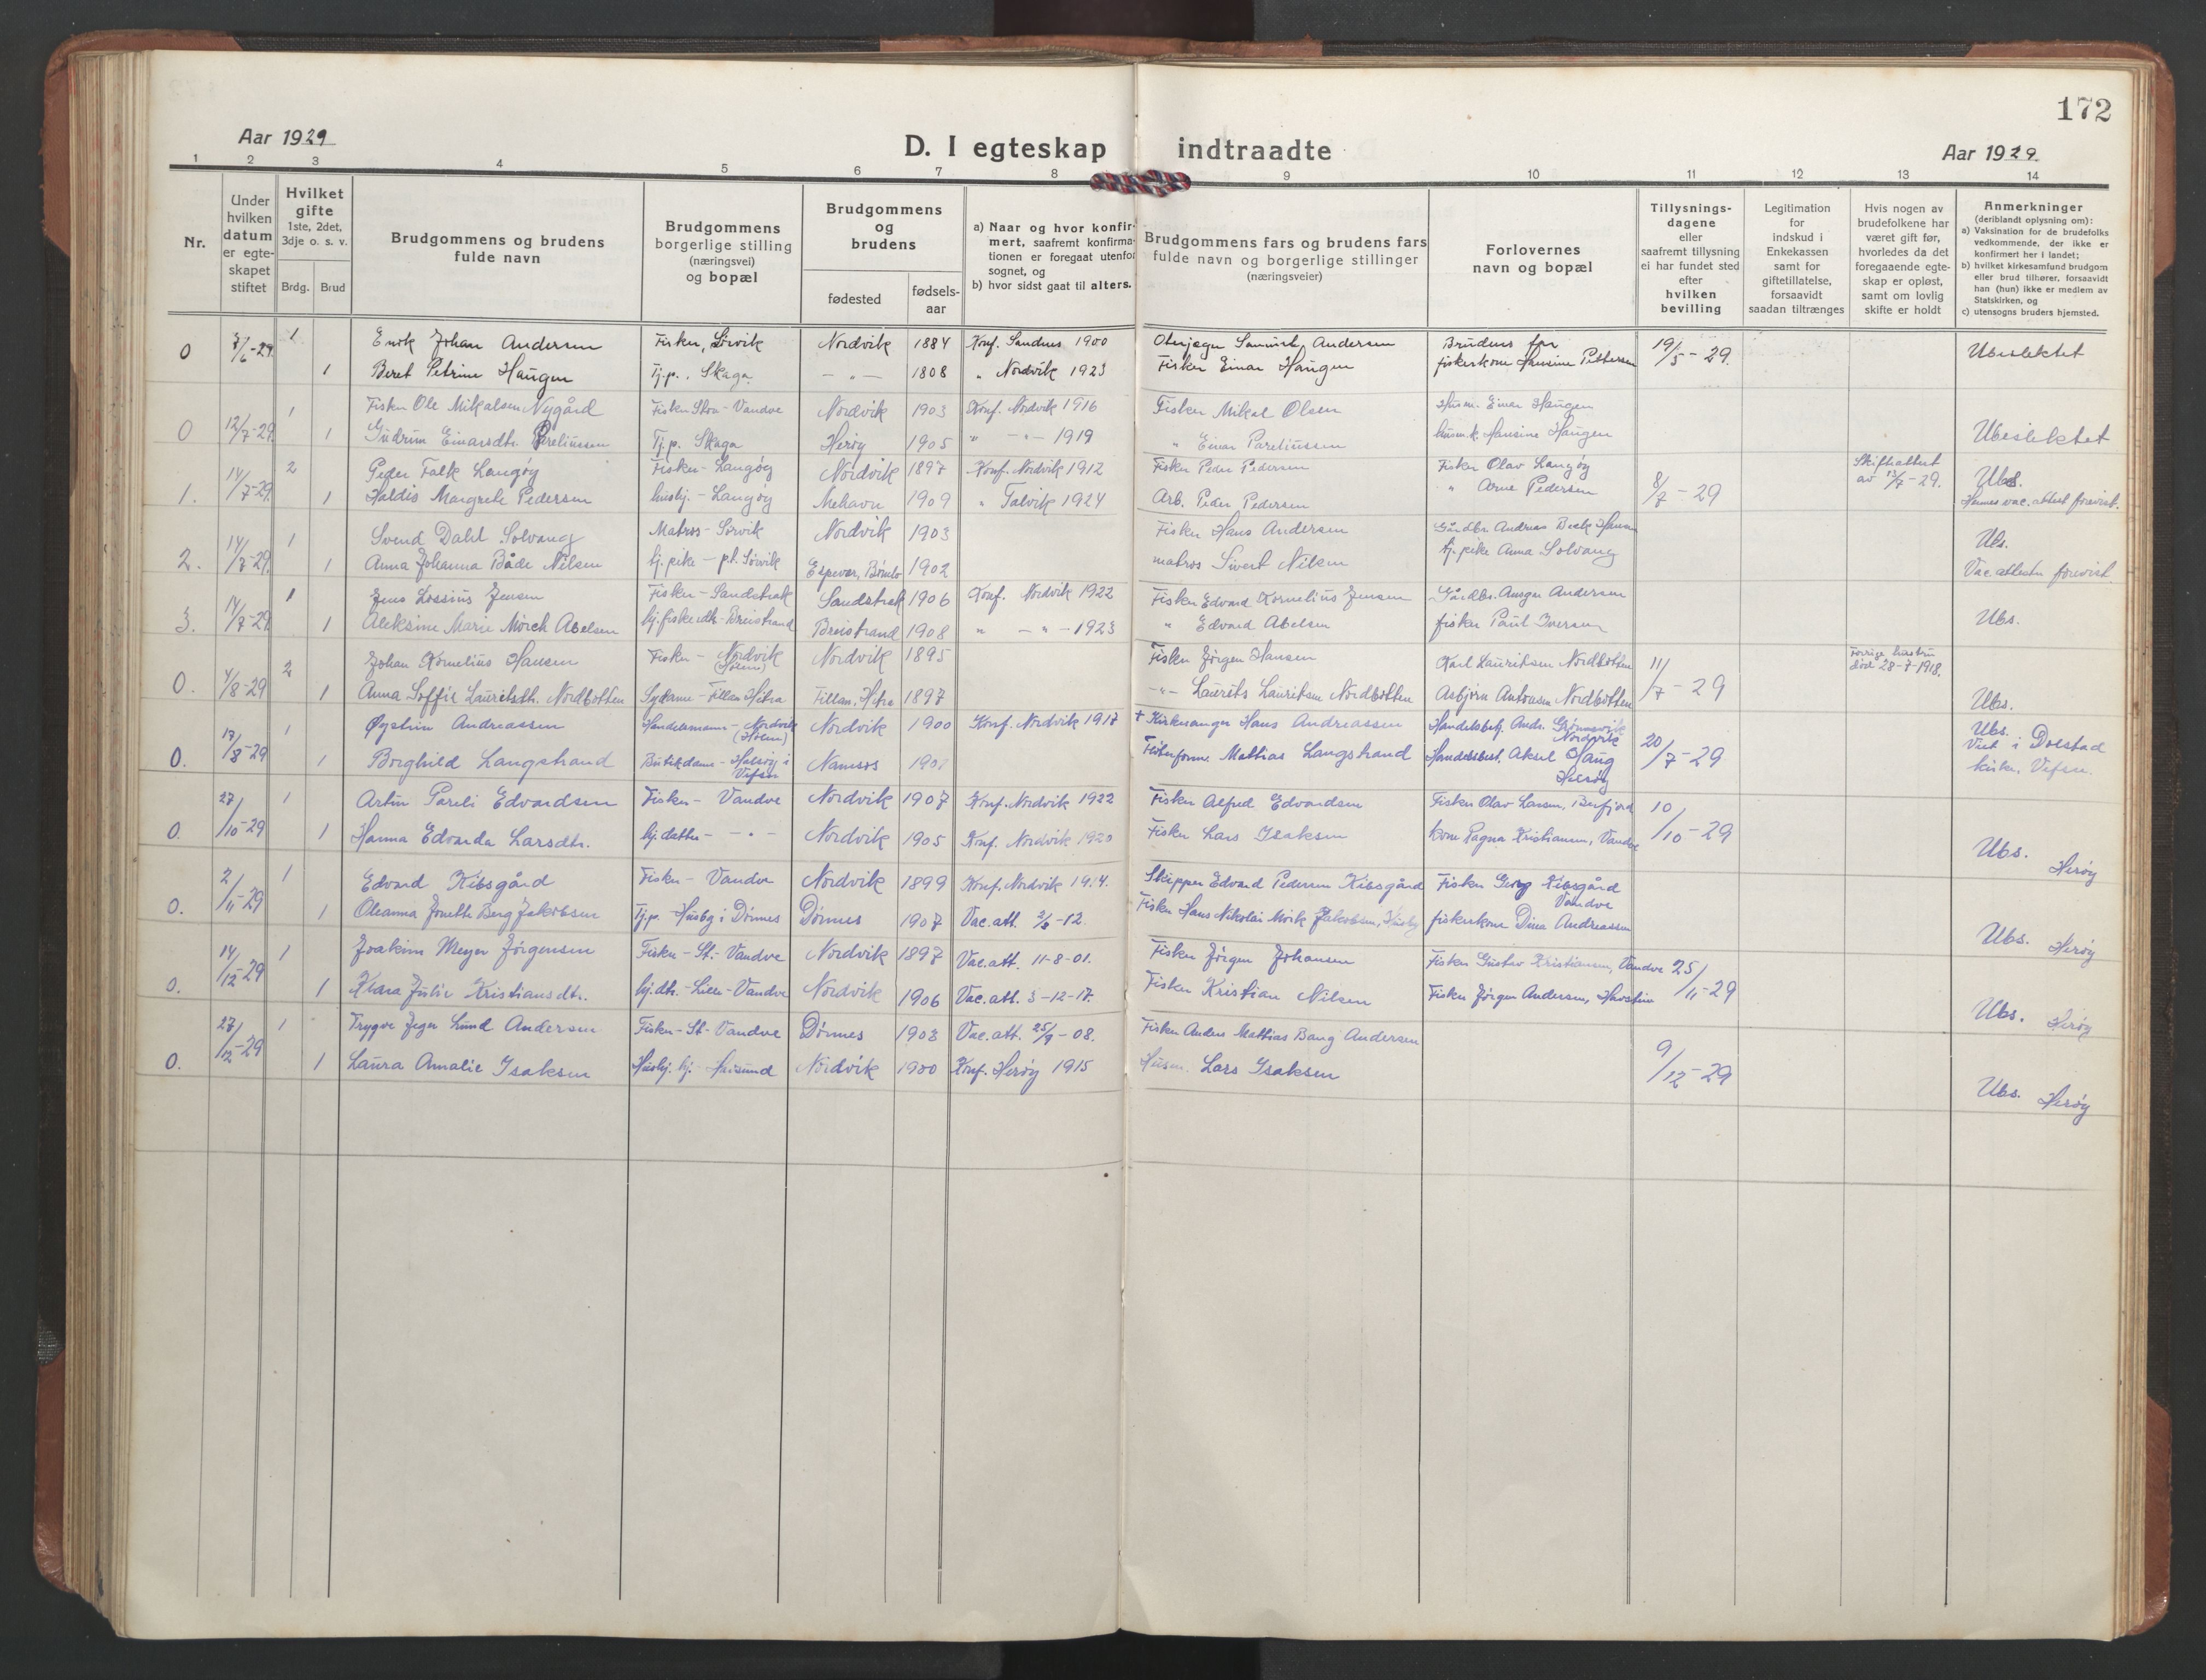 172
Aar 1929
D. I egteskap indtraadte
Aar 1929
1 2 3 4 5 6 7 8 9 10 11 12 13 14
Nr.
Under hvilken datum er egte-skapet stiftet
Hvilket gifte 1ste, 2det, 3dje o. s. v.
Brdg. Brud
Brudgommens og brudens fulde navn
Brudgommens borgerlige stilling (næringsvei) og bopæl
Brudgommens og brudens
fødested
fødsels-aar
a) Naar og hvor konfir-mert, saafremt konfirma-tionen er foregaat utenfor sognet, og
b) hvor sidst gaat til alters.
Brudgommens fars og brudens fars fulde navn og borgerlige stillinger (næringsveier)
Forlovernes navn og bopæl
Tillysnings-dagene eller saafremt tillysning ei har fundet sted efter hvilken bevilling
Legitimation for indskud i Enkekassen samt for giftetillatelse, forsaavidt saadan tiltrænges
Hvis nogen av brudefolkene har været gift før, hvorledes da det foregaaende egte-skap er opløst, samt om lovlig skifte er holdt
Anmerkninger (deriblandt oplysning om):
a) Vaksination for de brudefolks vedkommende, der ikke er konfirmert her i landet;
b) hvilket kirkesamfund brudgom eller brud tilhører, forsaavidt han (hun) ikke er medlem av Statskirken, og
c) utensogns bruders hjemsted.
0 3/6-29. 1 Enok Johan Andersen Fisker, Sørvik Nordvik 1884 Konf. Sandnes 1900 Andersen Brudens far 19/5-29. Ubeslektet
1 Beret Petrine Haugen Tj.p., Skaga -„- 1808 „ Nordvik 1923 Fisker Einar Haugen fiskerkone Hansine Pettersen
0 12/7-29. 1 Fisker Ole Mikalsen Nygård Fisker Stor-Vandve Nordvik 1903 Konf. Nordvik 1916 Fisker Mikal Olsen Husm. Einar Haugen
1 Gudrun Einarsdtr. Pareliussen Tj.p. Skaga Herøy 1905 „ -„- 1919 „ Einar Pareliussen husm.k. Hansine Haugen Ubeslektet
1. 14/7-29. 2 Peder Falk Langøy Fisker-Langøy Nordvik 1897 Konf. Nordvik 1912 Fisker Peder Pedersen Fisker Olav Langøy 8/7-29 Skifteattest av 13/7-29. Ubs.
1 Haldis Margrete Pedersen hushj.-Langøy Mehavn 1909 „ Talvik 1924 Arb. Peder Pedersen „ Arne Pedersen Hennes vac.attest forevist.
2. 14/7-29. 1 Svend Dahl Solvang Matros-Sørvik Nordvik 1903 Fisker Hans Andersen Gårdbr. Andreas Beck Hansen Ubs.
1 Anna Johanna Både Nilsen tj.pike - p.t. Sørvik Espevær, Bømlo 1902 matros Sivert Nilsen tj.pike Anna Solvang Vac.attester forevist
3. 14/7-29 1 Jens Lossius Jensen Fisker-Sandstrak Sandstrak 1906 Konf. Nordvik 1922 Fisker Edvard Kornelius Jensen Gårdbr. Ansgar Andersen
1 Aleksine Marie Mørch Abelsen hj.fiskerdtr-Breistrand Breistrand 1908 „ -„- 1923 „ Edvard Abelsen fisker Paul Iversen Ubs.
0. 4/8-29 2 Johan Kornelius Hansen Fisker - Nordvik (Holm) Nordvik 1895 Fisker Jørgen Hansen Karl Lauritsen Nordbotten 11/7-29 Forrige hustru død 28-7-1918.
1 Anna Soffie Lauritsdtr. Nordbotten Syerske - Fillan Hitra Fillan, Hitra 1897 -„- Laurits Lauritsen Nordbotten Asbjørn Antonsen Nordbotten Ubs.
0. 17/8-29 1 Øystein Andreassen Handelsmann-Nordvik (Holm) Nordvik 1900 Konf. Nordvik 1917 + Kirkesanger Hans Andreassen Handelsbetj. Andr. Grønnsvik Nordvik 20/7-29 Ubs. Viet i Dolstad kirke, Vefsn.
1 Borghild Langstrand Butikdame - Halsøy i Vefsn Namsos Mathias Langstrand Handelsbest. Aksel Haug Herøy
0. 27/10-29 1 Artur Pareli Edvardsen Fisker - Vandve Nordvik 1907 Konf. Nordvik 1922 Fisker Alfred Edvardsen Fisker Olav Larsen, 10/10-29
1 Hanna Edvarda Larsdtr. hj.datter - „ - Nordvik 1905 Konf. Nordvik 1920 Fisker Lars Isaksen kone Pagna Kristiansen, Vandve Ubs. Herøy
0. 2/11-29 1 Edvard Kibsgård Fisker - Vandve Nordvik 1899 Konf. Nordvik 1914. Skipper Edvard Pedersen Kibsgård Fisker Georg Kibsgård Vandve
1 Oleanna Jonette Berg Jakobsen Tj.p. Husby i Dønnes Dønnes 1907 Vac.att. 2/8-12. Fisker Hans Nikolai Jakobsen, Husby fiskerkone Dina Andreassen Ubs. Herøy
0. 14/12-29 1 Joakim Meyer Jørgensen Fisker - St.-Vandve Nordvik 1897 Vac.att. 11-8-01. Fisker Jørgen Johansen Fisker Gustav Kristiansen, Vandve 25/11-29
1 Klara Julie Kristiansdtr. hj.dtr.-Lille-Vandve Nordvik 1906 Vac.att. 3-12-17. Fisker Kristian Nilsen Fisker Jørgen Andersen, Havstein Ubs. Herøy
0. 27/12-29 1 Trygve Jeger Lund Andersen Fisker-St-Vandve Dønnes 1903 Vac.att. 25/9-08. Fisker Anders Mathias Bang Andersen 9/12-29
1 Laura Amalie Isaksen Hushj. hj. Nordvik 1900 Konf. Herøy 1915 Husm. Lars Isaksen Ubs. Herøy